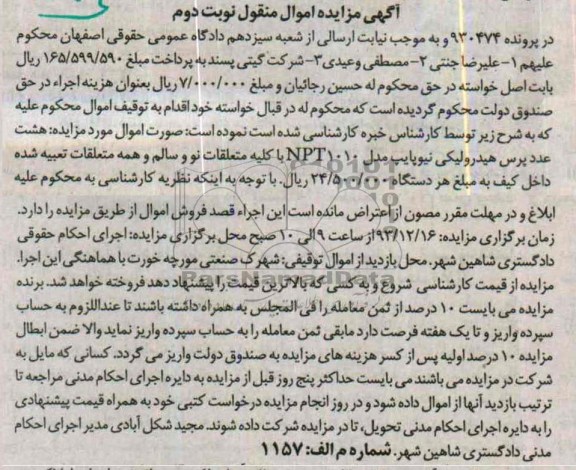 آگهی مزایده اموال منقول نوبت دوم
در پرونده ۹۳۰۴۷۴ و به موجب نیابت ارسالی از شعبه سیزدهم دادگاه عمومی حقوقی اصفهان محکوم
علیهم ۱- علیرضا جنتی ۲- مصطفی وعیدی ۳- شرکت گیتی پسند به پرداخت مبلغ ۱۶۵/۵۹۹/۵۹۰ ریال
بابت اصل خواسته در حق محکوم له حسین رجائیان و مبلغ ۷/۰۰۰/۰۰۰ ریال بعنوان هزینه اجراء در حق
صندوق دولت محکوم گردیده است که محکوم له در قبال خواسته خود اقدام به توقیف اموال محکوم علیه
که به شرح زیر توسط کارشناس خبره کارشناسی شده است نموده است: صورت اموال مورد مزایده: هشت
عدد پرس هیدرولیکی نیوپایپ مدل NPT۱۰۱۰ با کلیه متعلقات نو و سالم و همه متعلقات تعبیه شده
داخل کیف به مبلغ هر دستگاه ۲۴/۵۰۰/۰۰۰ ریال. با توجه به اینکه نظریه کارشناسی به محکوم علیه
ابلاغ و در مهلت مقرر مصون از اعتراض مانده است این اجراء قصد فروش اموال از طریق مزایده را دارد.
زمان برگزاری مزایده: ۹۳/۱۲/۱۶ از ساعت ۹ الی ۱۰ صبح محل برگزاری مزایده: اجرای احکام حقوقی
دادگستری شاهین شهر. محل بازدید از اموال توقیفی: شهرک صنعتی مورچه خورت با هماهنگی این اجرا.
مزایده از قیمت کارشناسی شروع و به کسی که بالاترین قیمت را پیشنهاد دهد فروخته خواهد شد. برنده
مزایده می بایست ۱۰ درصد از ثمن معامله را فی المجلس به همراه داشته باشند تا عنداللزوم به حساب
سپرده واریز و تا یک هفته فرصت دارد مابقی ثمن معامله را به حساب سپرده واریز نماید والا ضمن ابطال
مزایده ۱۰ درصد اولیه پس از کسر هزینه های مزایده به صندوق دولت واریز می گردد. کسانی که مایل به
شرکت در مزایده می باشند می بایست حداکثر پنج روز قبل از مزایده به دایره اجرای احکام مدنی مراجعه تا
ترتیب بازدید آنها از اموال داده شود و در روز انجام مزایده درخواست کتبی خود به همراه قیمت پیشنهادی
را به دایره اجرای احکام مدنی تحویل، تا در مزایده شرکت داده شوند. مجید شکل آبادی مدیر اجرای احکام
مدنی دادگستری شاهین شهر. شماره م الف: ۱۱۵۷